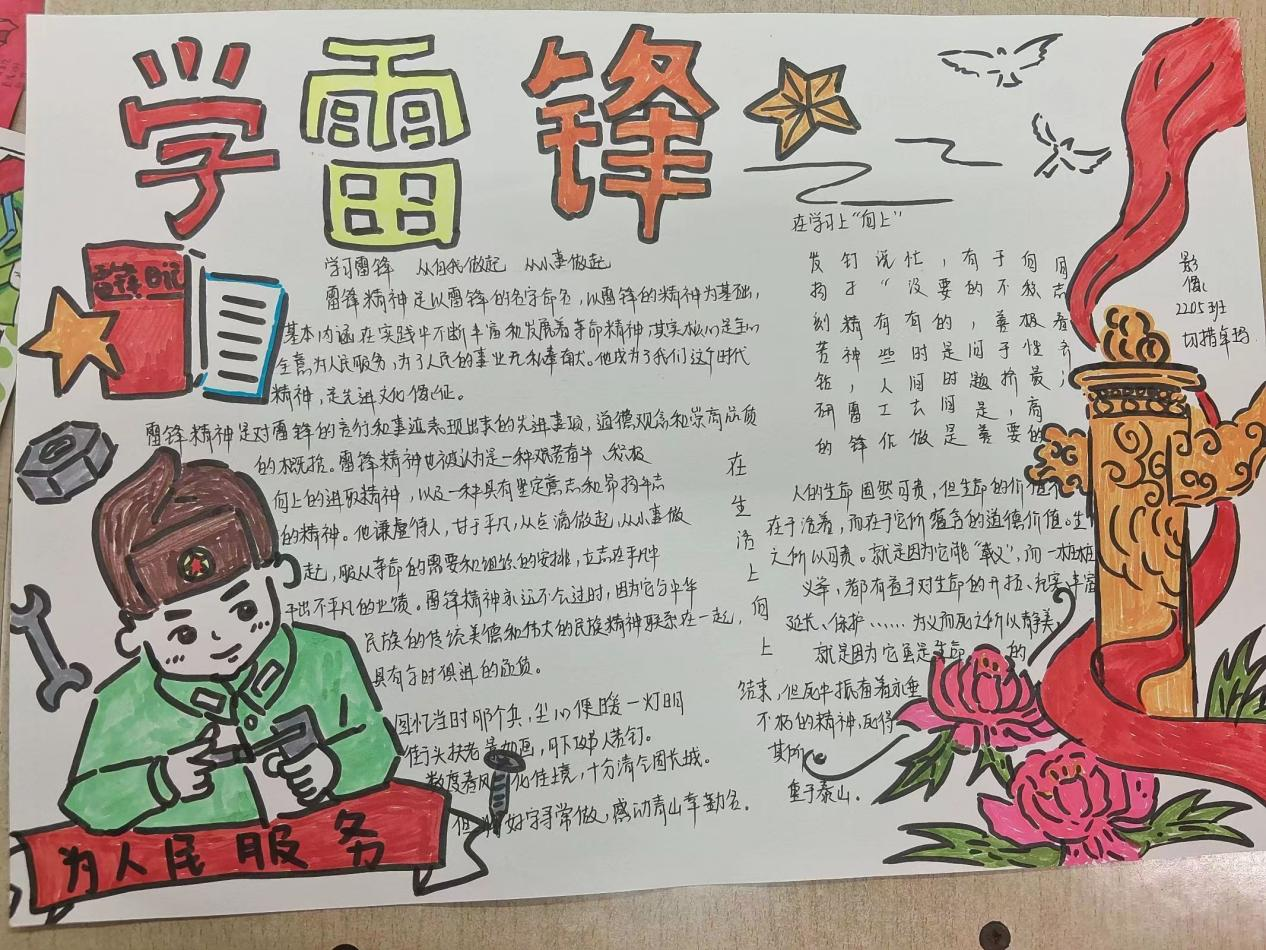 学雷锋
雷锋日记
学习雷锋 从自我做起 从小事做起
雷锋精神是以雷锋的名字命名，以雷锋的精神为基础，
基本内涵在实践中不断丰富和发展着革命精神，其实核心是全心
全意为人民服务，为了人民的事业无私奉献。他成为了我们这个时代
精神，是先进文化 象征。
雷锋精神是对雷锋的言行和事迹表现出来的先进事项，道德观念和崇高品质
的概括。雷锋精神也被认为是一种艰苦奋斗、积极
向上的进取精神，以及一种具有坚定意志和昂扬斗志
的精神。他谦虚待人，甘于平凡，从点滴做起，从小事做
起，服从革命的需要和组织的安排，立志在平凹中
干出不平凡的业绩。雷锋精神永远不会过时，因为它与中华
民族的传统美德和伟大的民族精神联系在一起，
具有与时俱进的品质。
回忆当时那个兵，尘心便暖一灯明
街头扶老 如画，月下 人苦钉。
数度春风化佳境，十分清气固长城。
但 好字寻常做，感动青山年勤名。
为人民服务
在学习上“向上”
发钉说忙，有于向同
扬子“没要的不我志
刻精有有的，善极看
苦神些时是问于性齐
钻，人间时题挤最；
研雷工去间是，高
的锋作做是善要的
在生活上向上
人的生命固然可贵，但生命的价值不
在于活着，而在于它所蕴含的道德价值。生
之所以可贵。就是因为它能“载义”，而一桩桩
义举，都有益于对生命的开拓、充实、丰富
延长、保护……为义而死之所以静美，
就是因为它虽是生命 的
结束，但死中振奋着永垂
不朽的精神，死得
其所
重于泰山。
影像
2205班
切措卓玛